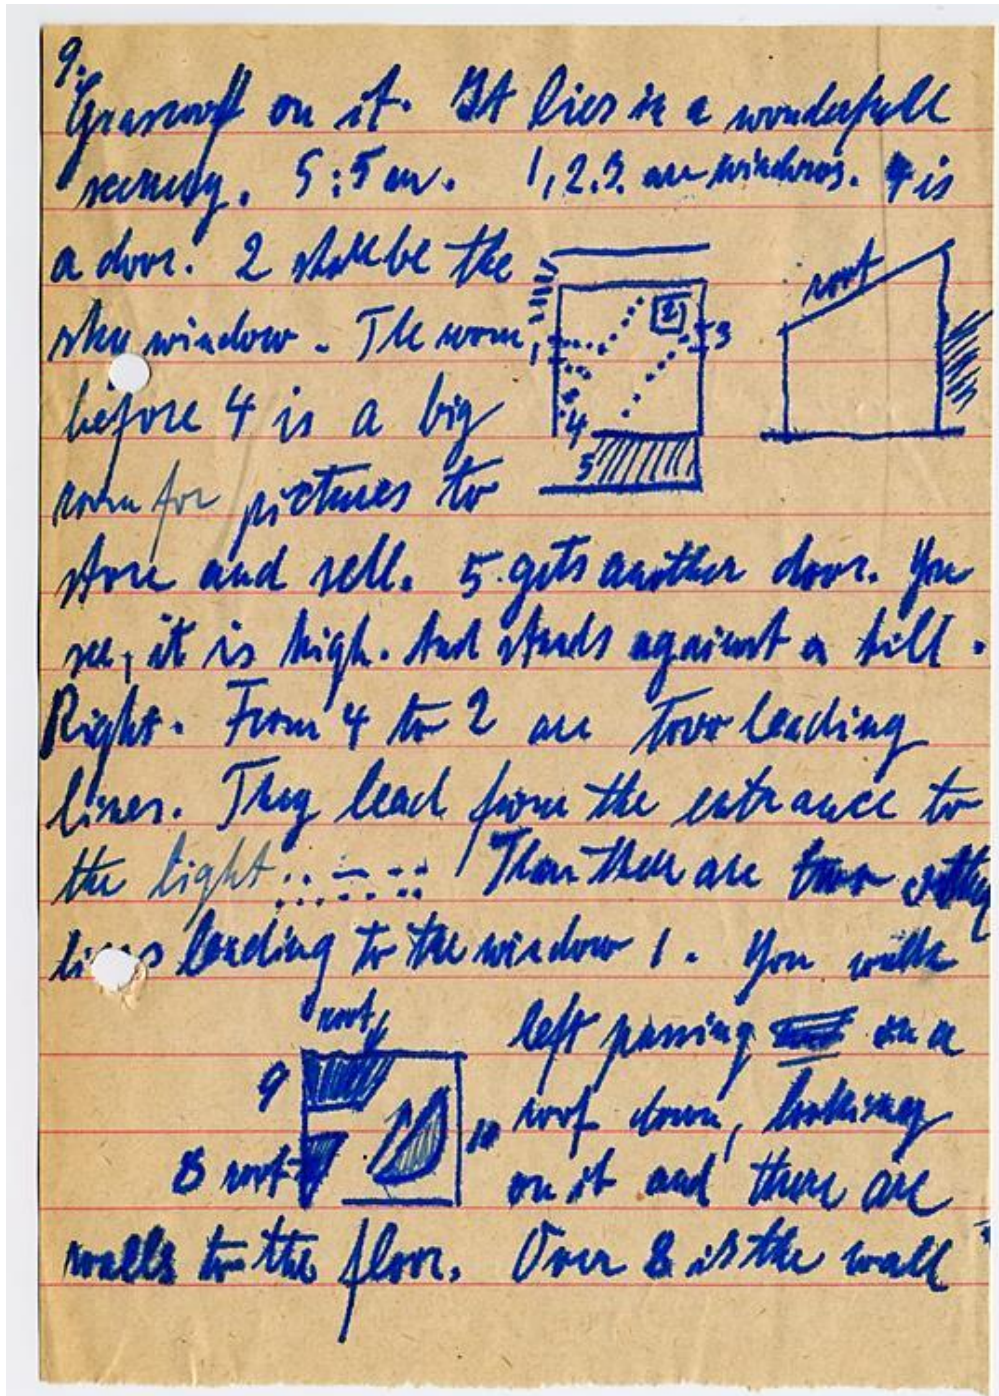 9.
on it. It lies in a wonderfull
scenery. 5:5 m. 1,2.3. are windows. 4 is
a door. 2 shall be the
sky window. The room
before 4 is a big
room for pictures to
store and sell. 5 gets another door. You
see, it is high. And stands against a hill.
Right. From 4 to 2 are two leading
lines. They lead from the entrance to
the light Then there are two other
lines leading to the window 1. You walk
left passing on a
roof down, looking
on it and there are
walls to the floor. Over 8 is the wall
2
3
1
4
5
roof
roof
9
8 roof
10